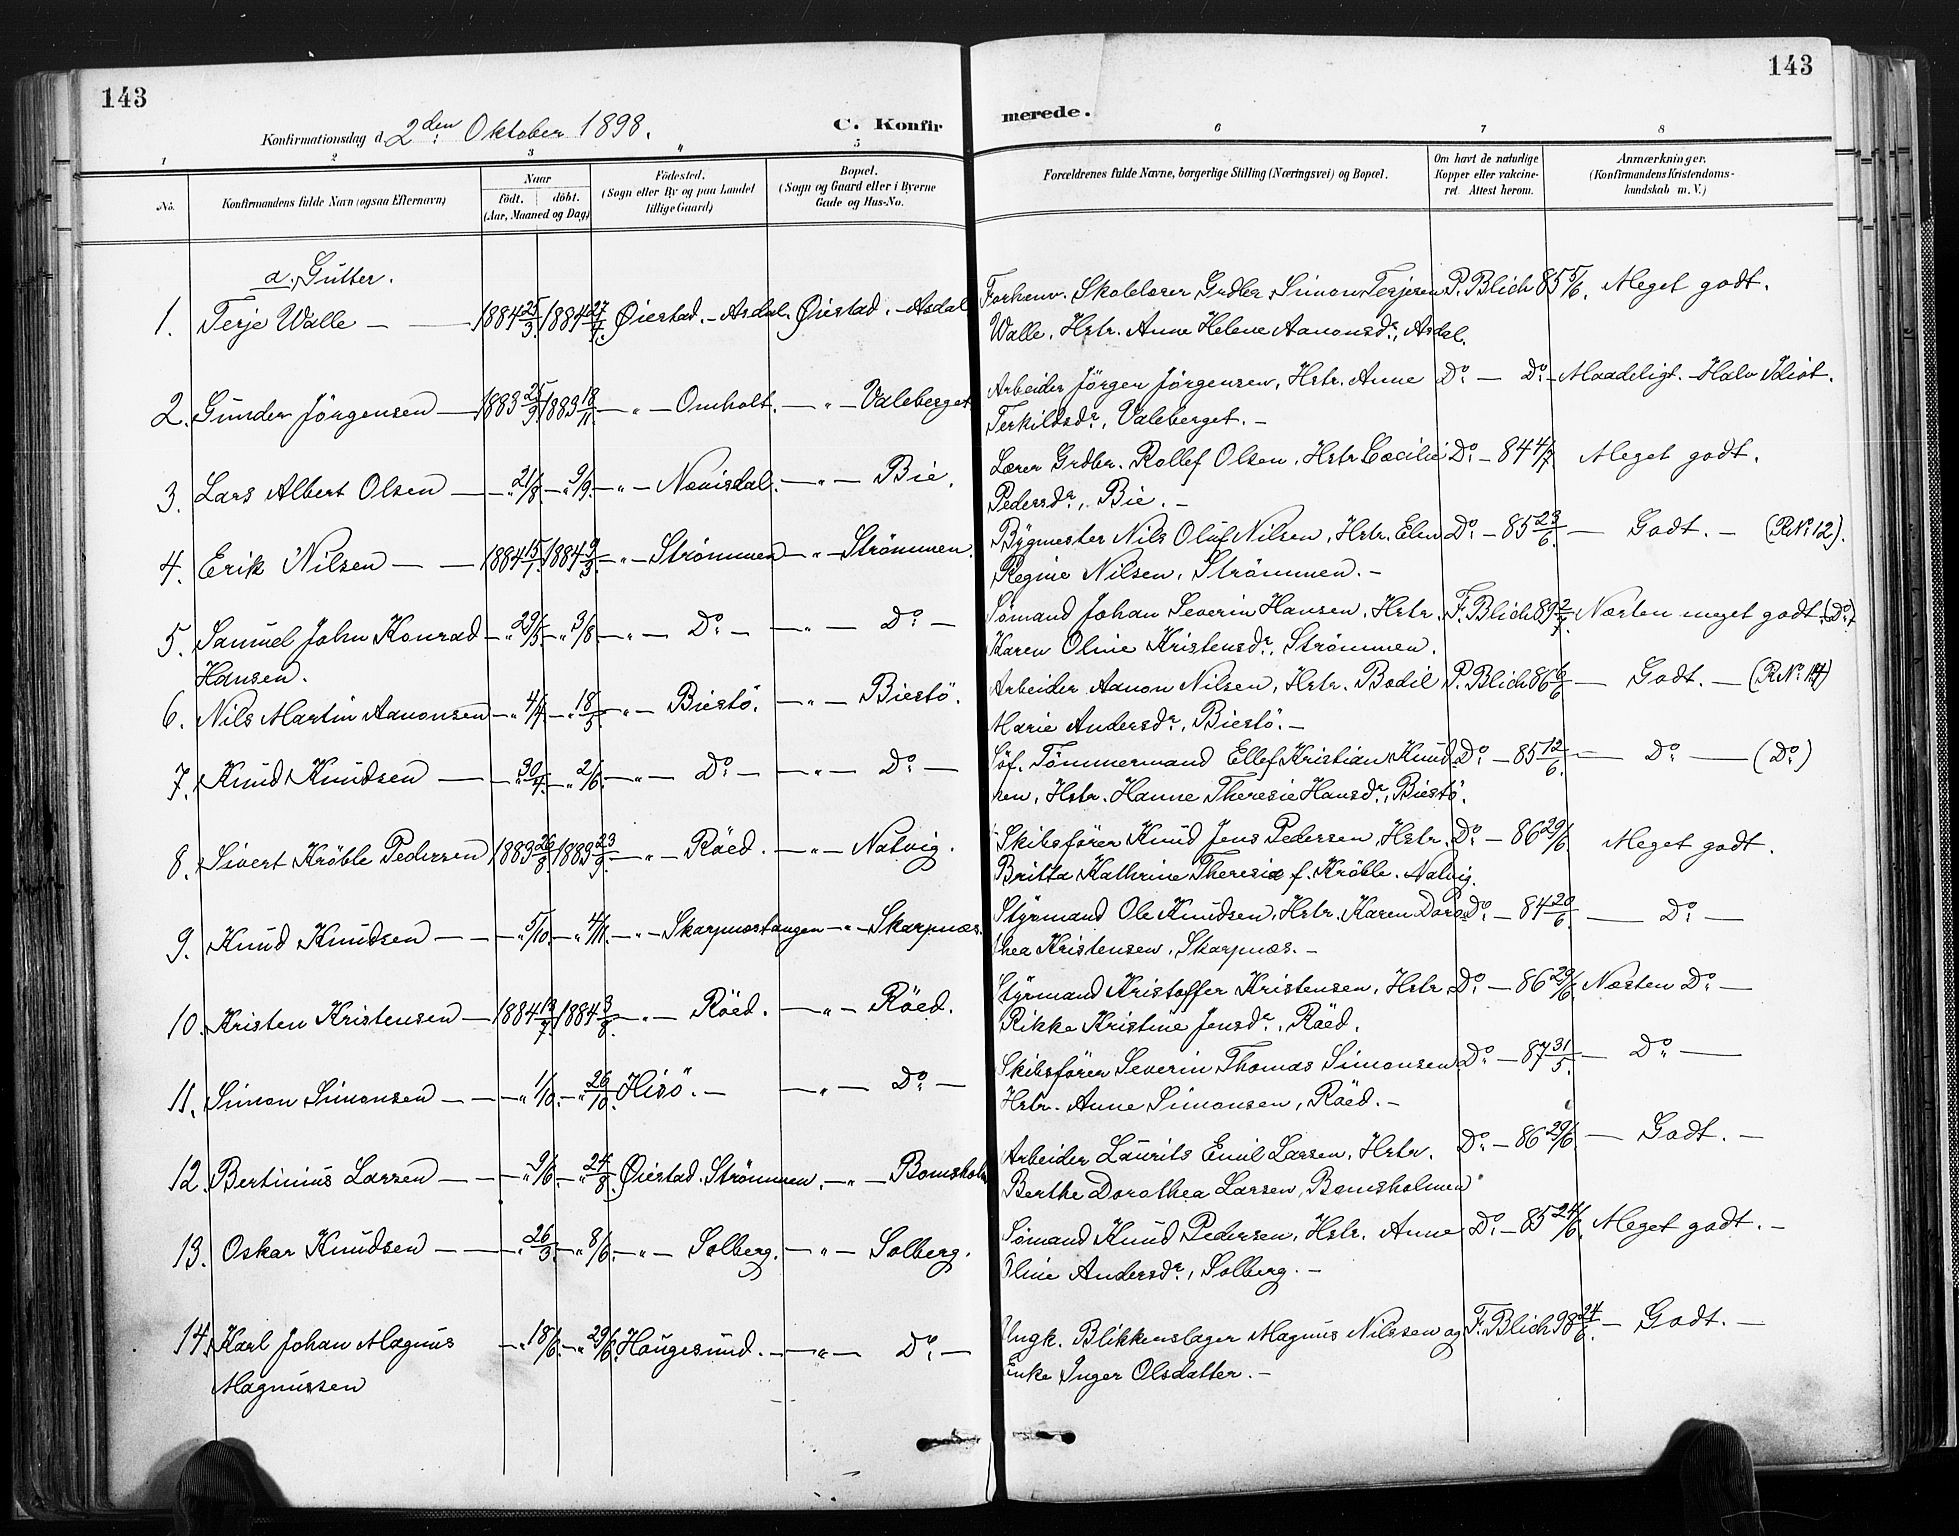 143
143
Konfirmationsdag d. 2den Oktober 1898.
C. Konfirmerede.
1 2 3 4 5 6 7 8
No.
Konfirmandens fulde Navn (ogsaa Efternavn)
Naar
født. døbt.
(Aar, Maaned og Dag)
Fødested.
(Sogn eller By og paa Landet
tillige Gaard)
Bopæl.
(Sogn og Gaard eller i Byerne
Gade og Hus-No.
Forældrenes fulde Navne, borgerlige Stilling (Næringsvei) og Bopæl.
Om havt de naturlige
Kopper eller vakcine-
ret. Attest herom.
Anmærkninger.
(Konfirmandens Kristendoms-
kundskab m. V.)
a. Gutter.
1. Terje Walle — 1884 25/3. 1884 27/4. Øiestad. - Asdal. Øiestad. - Asdal Forhenv. Skolelærer Grdbr. Simon Terjesen P. Blich 85 5/6. Meget godt.
Walle, Hstr. Anne Helene Aanonsdr., Asdal.
2. Gunder Jörgensen — 1883 25/9. 1883 18/11. — „ — Omholt. — „ — Valeberget Arbeider Jörgen Jörgensen, Hstr. Anne Do. — Do. Maadeligt. - Halv Idiot.
Terkildsdr., Valeberget. —
3. Lars Albert Olsen — „ 21/8. — „ 9/9. — „ — Nævisdal. — „ — Bie. Lærer Grdbr. Rollef Olsen, Hstr. Cæcilie Do. — 84 4/7 Meget godt.
Pedersdr., Bie. —
4. Erik Nilsen — — 1884 15/1. 1884 9/3. — „ — Strömmen — „ — Strömmen. Bygmester Nils Oluf Nilsen, Hstr. Elen Do. — 85 23/6. — Godt. — (R No. 12).
Regine Nilsen, Strömmen. —
5. Samuel John Konrad — „ 29/5 — „ 3/8. — „ — Do. — — „ — Do. — Sømand Johan Severin Hansen, Hstr. F. Blich 89 2/7. Næsten meget godt. (Do.)
Hansen.
Karen Oline Kristensdr., Strömmen.
6. Nils Martin Aanonsen — „ 4/4 — „ 18/5 — „ — Biestö. — „ — Biestö. Arbeider Aanon Nilsen, Hstr. Bodil P. Blich 86 6/6 — Godt. — (R No. 14)
Marie Andersdr., Biestö. —
7. Knud Knudsen — „ 30/4. — „ 2/6. — „ — Do. — — „ — Do. — Söf. Tömmermand Ellef Kristian Knud- Do. — 85 12/6. — Do. — (Do.)
sen, Hstr. Hanne Theresie Hansdr., Biestö.
8. Sivert Kröble Pedersen 1883 26/8. 1883 23/9. — „ — Röed. — „ — Natvig. Skibsfører Knud Jens Pedersen, Hstr. Do. — 86 29/6 Meget godt.
Britta Kathrine Theresia f. Kröble. Natvig.
9. Knud Knudsen — — „ 5/10. — „ 4/11. — „ — Skarpnæstangen — „ — Skarpnæs. Styrmand Ole Knudsen, Hstr. Karen Doro- Do. — 84 20/6. — Do. —
thea Kristensen, Skarpnæs. —
10. Kristen Kristensen — 1884 13/7. 1884 3/8. — „ — Röed. — „ — Röed. Styrmand Kristoffer Kristensen, Hstr. Do. — 86 29/6. Næsten Do. —
Rikke Kristine Jensdr., Röed.
11. Simon Simonsen — — „ 1/10. — „ 26/10. Hisö. — — „ — Do. — Skibsfører Severin Thomas Simonsen Do. — 87 31/5. — Do. —
Hstr. Anne Simonsen, Röed. —
12. Bertinius Larsen — — „ 9/6. — „ 24/8. Øiestad. Strömmen. — „ — Bomsholm Arbeider Laurits Emil Larsen, Hstr. Do. — 86 29/6. — Godt. —
Berthe Dorothea Larsen, Bomsholmen
13. Oskar Knudsen — — „ 26/3. — „ 8/6. — „ — Solberg. — „ — Solberg. Sømand Knud Pedersen, Hstr. Anne Do. — 85 24/6. Meget godt. —
Oline Andersdr., Solberg. —
14. Karl Johan Magnus — „ 18/6. — „ 29/6. Haugesund. — — „ — Do. — Ungk. Blikkenslager Magnus Nilssen og F. Blich 98 24/6. — Godt. —
Magnussen
Enke Inger Olsdatter. —